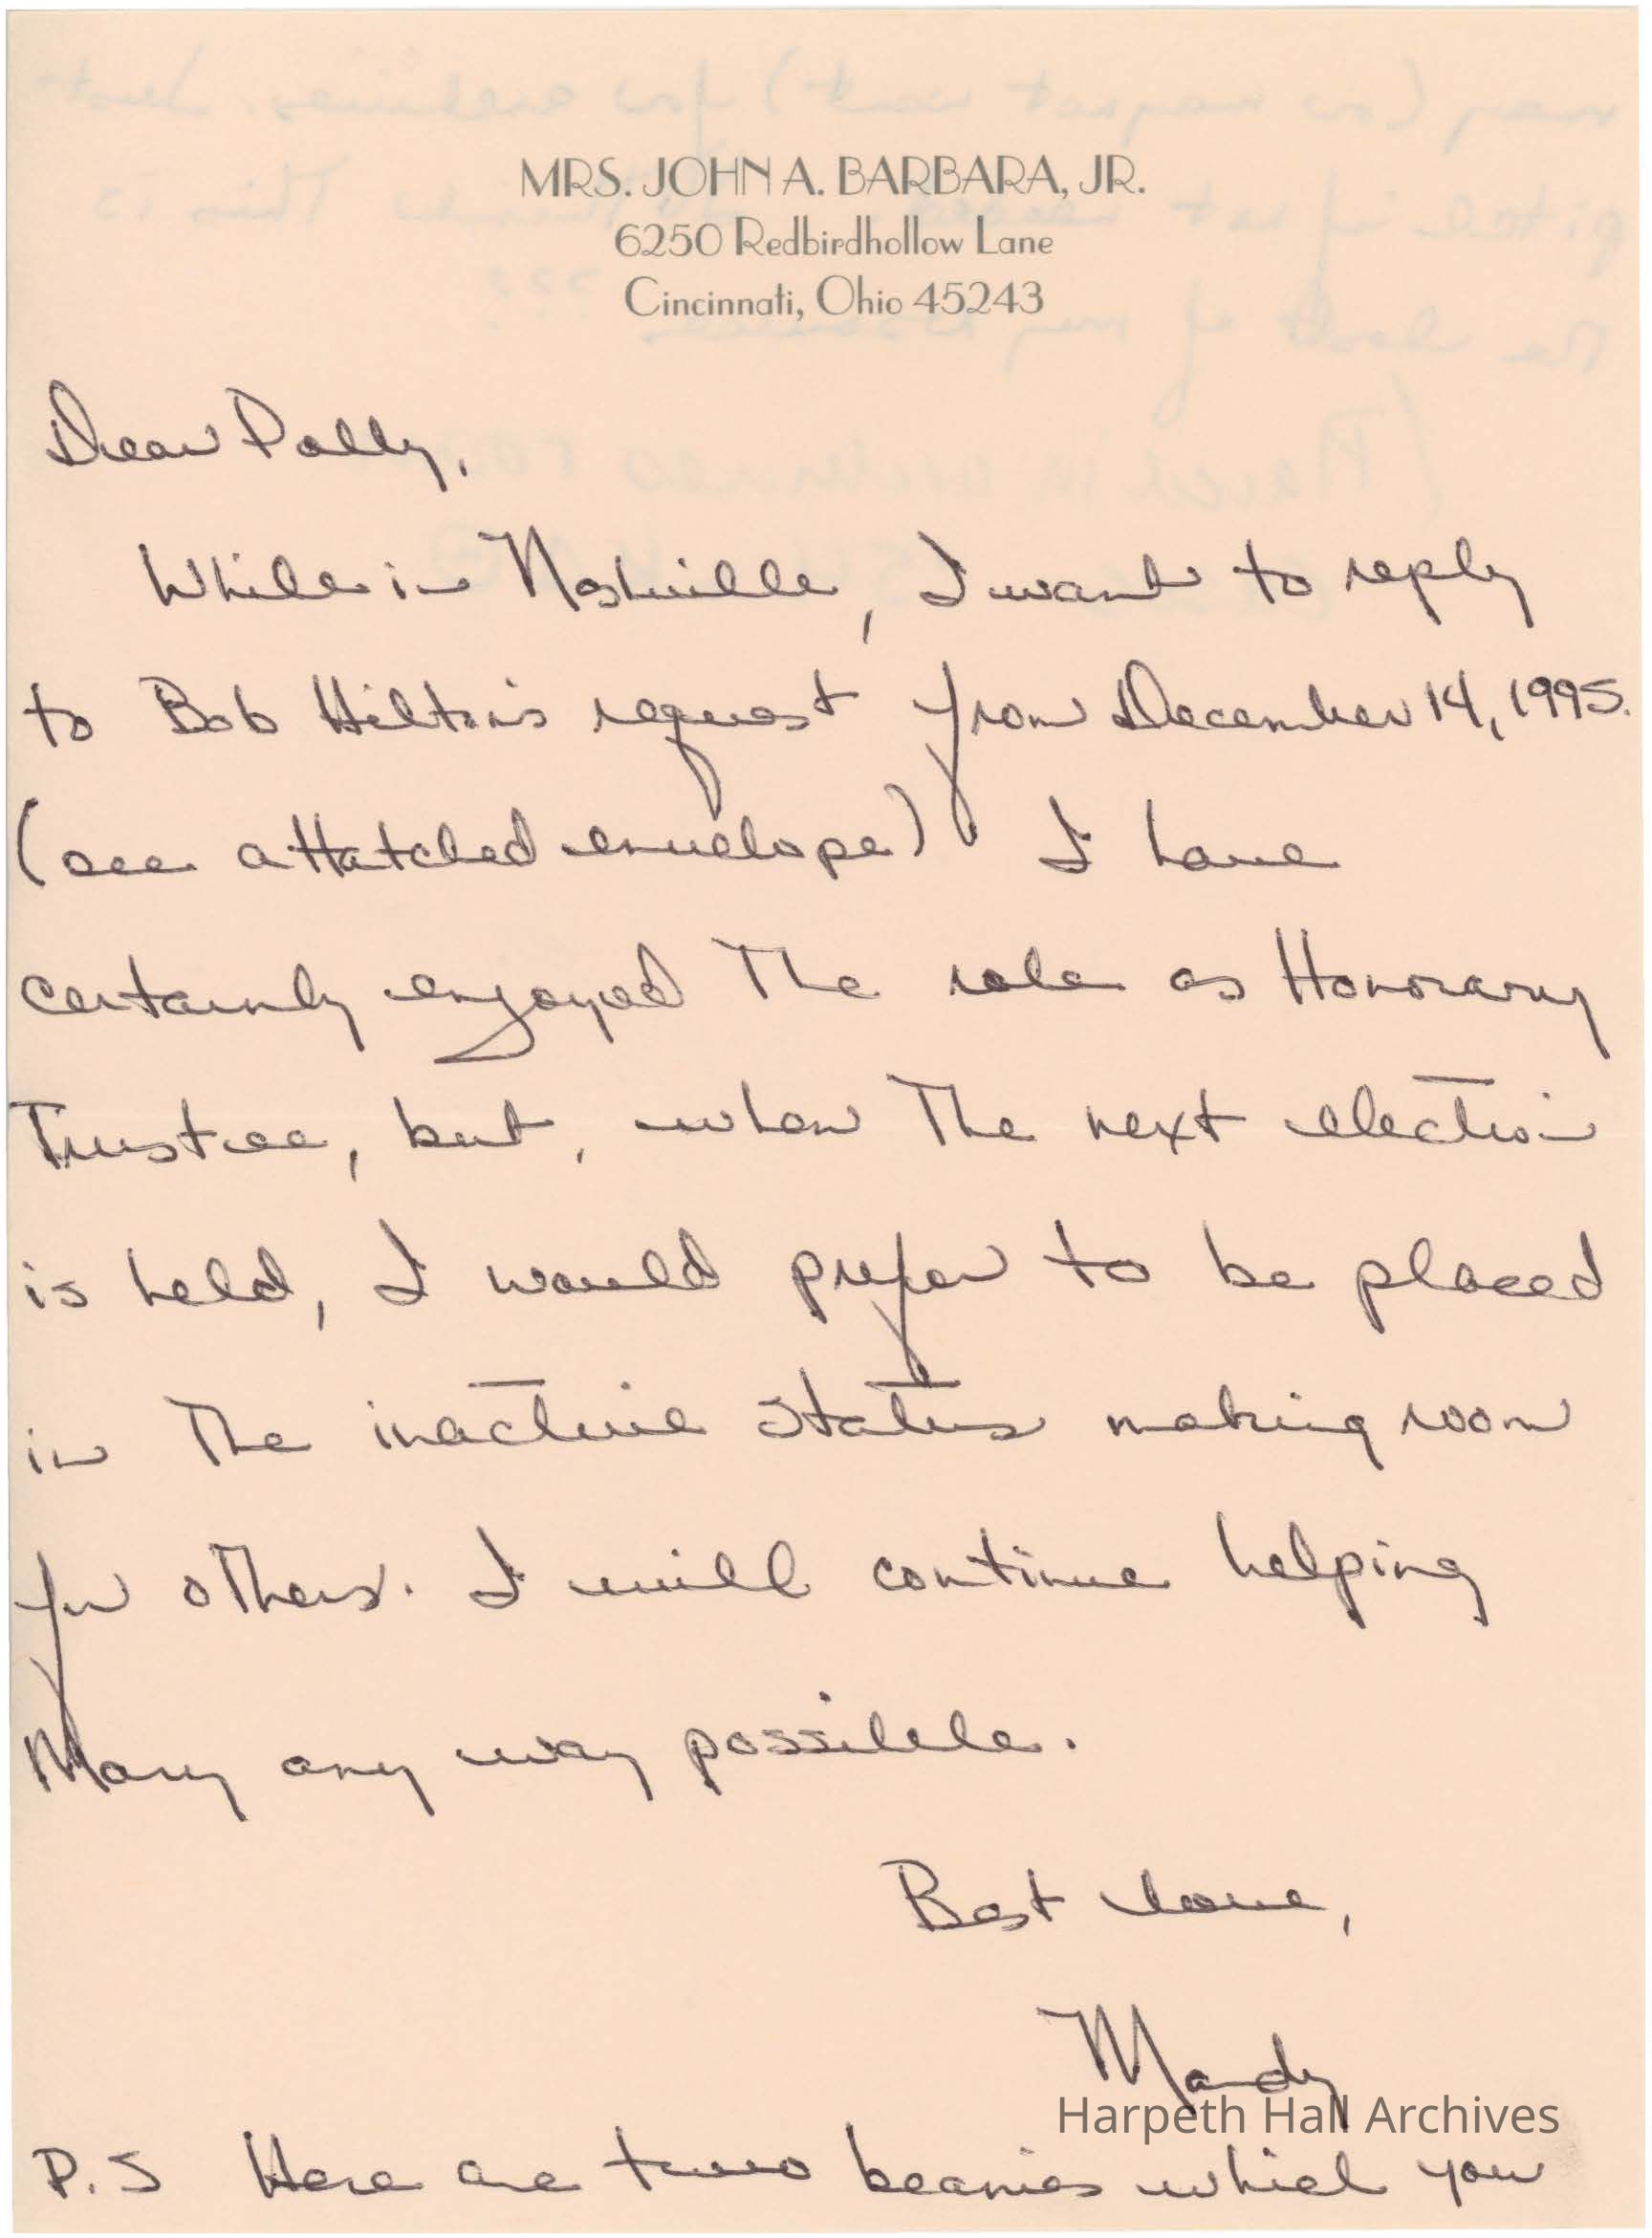 MRS. JOHN A. BARBARA, JR.
6250 Redbirdhollow Lane
Cincinnati, Ohio 45243
Dear Polly,
While in Nashville, I want to reply
to Bob Hilton's request from December 14, 1995.
(see attatched envelope) I have
certainly enjoyed the role as Honorary
Trustee, but, when the next election
is held, I would prefer to be placed
in the inactive status making room
for others. I will continue helping
Mary any way possible.
Best love,
Mandy
Harpeth Hall Archives
P.S Here are two beanies which you